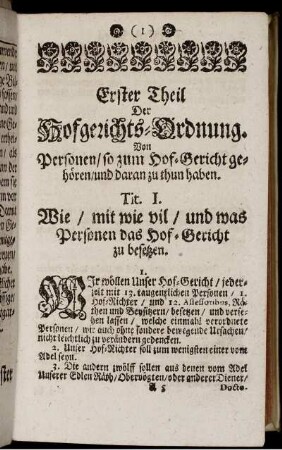 (1)
Erster Theil
Der
Hofgerichts-Ordnung.
Von
Personen/ so zum Hof-Gericht ge-
hören/ und daran zu thun haben.
Tit. I.
Wie / mit wie vil / und was
Personen das Hof-Gericht
zu besetzen.
1.
WIr wöllen Unser Hof-Gericht / jeder-
zeit mit 13. taugentlichen Personen / 1.
Hof-Richter / und 12. Assessoribus, Rä-
then und Beysitzern / besetzen / und verse-
hen lassen / welche einmahl verordnete
Personen / wir auch ohne sondere bewegende Ursachen/
nicht leichtlich zu verändern gedencken.
2. Unser Hof-Richter soll zum wenigsten einer vom
Adel seyn.
3. Die andern zwölff sollen aus denen vom Adel
Unserer Edlen Räth/ Obervögten/ oder anderer Diener/
A 5 Docto-